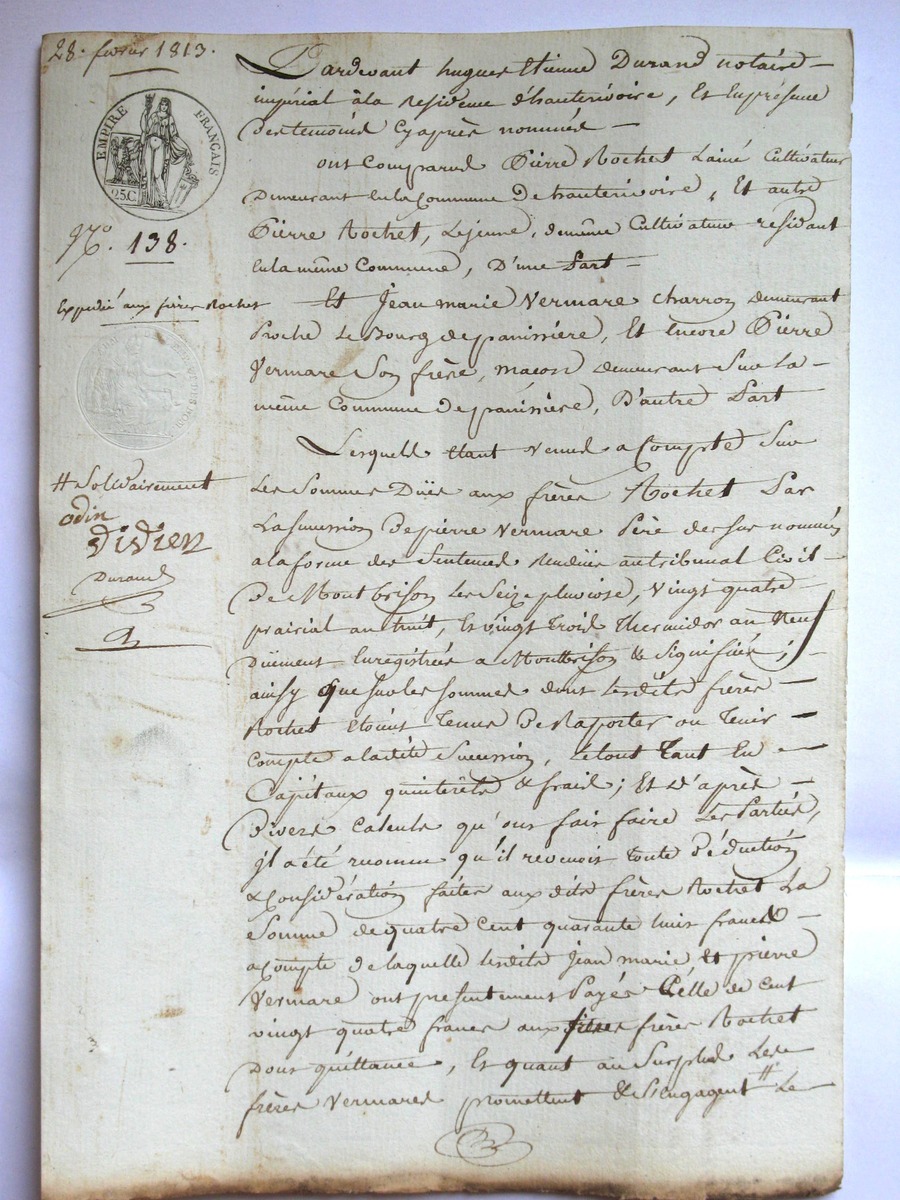 28. fevrier 1813.
EMPIRE FRANÇAIS
25.C
N.º 138.
Expedié aux freres Rochet
# Solidairement
odin
Didier
Durand
Pardevant hugues Etienne Durand notaire
impérial à la residence d'hauterivoire, Et En présence
Des temoins Cy après nommés
ont Comparus Pierre Rochet Lainé Cultivateur
Demeurant En la Commune De hauterivoire, Et autre
Pierre Rochet, Lejeune, demême Cultivateur residant
En la même Commune, D'une Part
Et Jean marie Vermare charron demeurant
Proche Le Bourg de panissière, Et encore Pierre
Vermare Son frère, macon demeurant Sur La
même Commune De panissière, D'autre Part
Lesquels Etant venus a Compte Sur
Les Sommes Düës aux frères Rochet Par
La Succession De pierre Vermare Père des sus nommés
a la forme des Sentences Rendües au tribunal Civil
De Montbrison Les Seize pluviose, Vingt quatre
prairial an huit, Et vingt Trois Thermidor an Neuf
Düëment Enregistrées a Montbrison & Signifiées;
ainsy que sur les sommes dont Lesdits frères
Rochet Etoint Tenus De Raporter ou Tenir
Compte a ladite Succession, Le tout Tant En
Capitaux qu'intérêts & frais; Et d'après
Divers Calculs qu'ont fait faire Les Parties,
il a été reconnu qu'il revenoit toute Déduction
& Considération faites aux dits frères Rochet La
Somme de quatre Cent quarante huit francs
a Compte de laquelle Lesdits Jean marie Et pierre
Vermare ont présentement Payés Celle de Cent
vingt quatre francs aux frères Rochet
Dont quittance, Et quant au Surplus Les
frères Vermares promettent & S'Engagent # Le